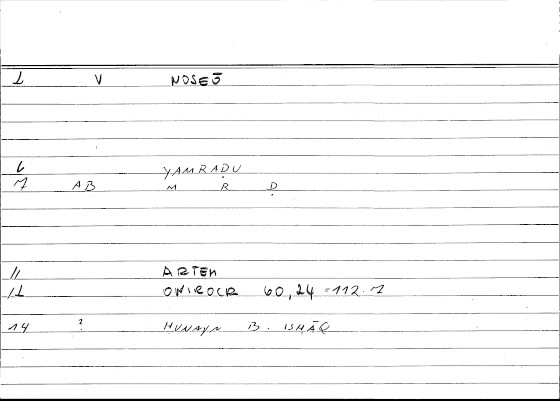 1 V NOSEŌ
6 YAMRAḌU
7 AB M R Ḍ
11 ARTEM
12 ONIROCR 60,24 = 112.7
14 ? ḤUNAYN B. ISḤĀQ